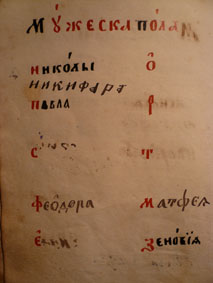 Мꙋжеска пола
николы О
никифара
павла Р
С Т
Феодора Матфея
Е Зеновїя